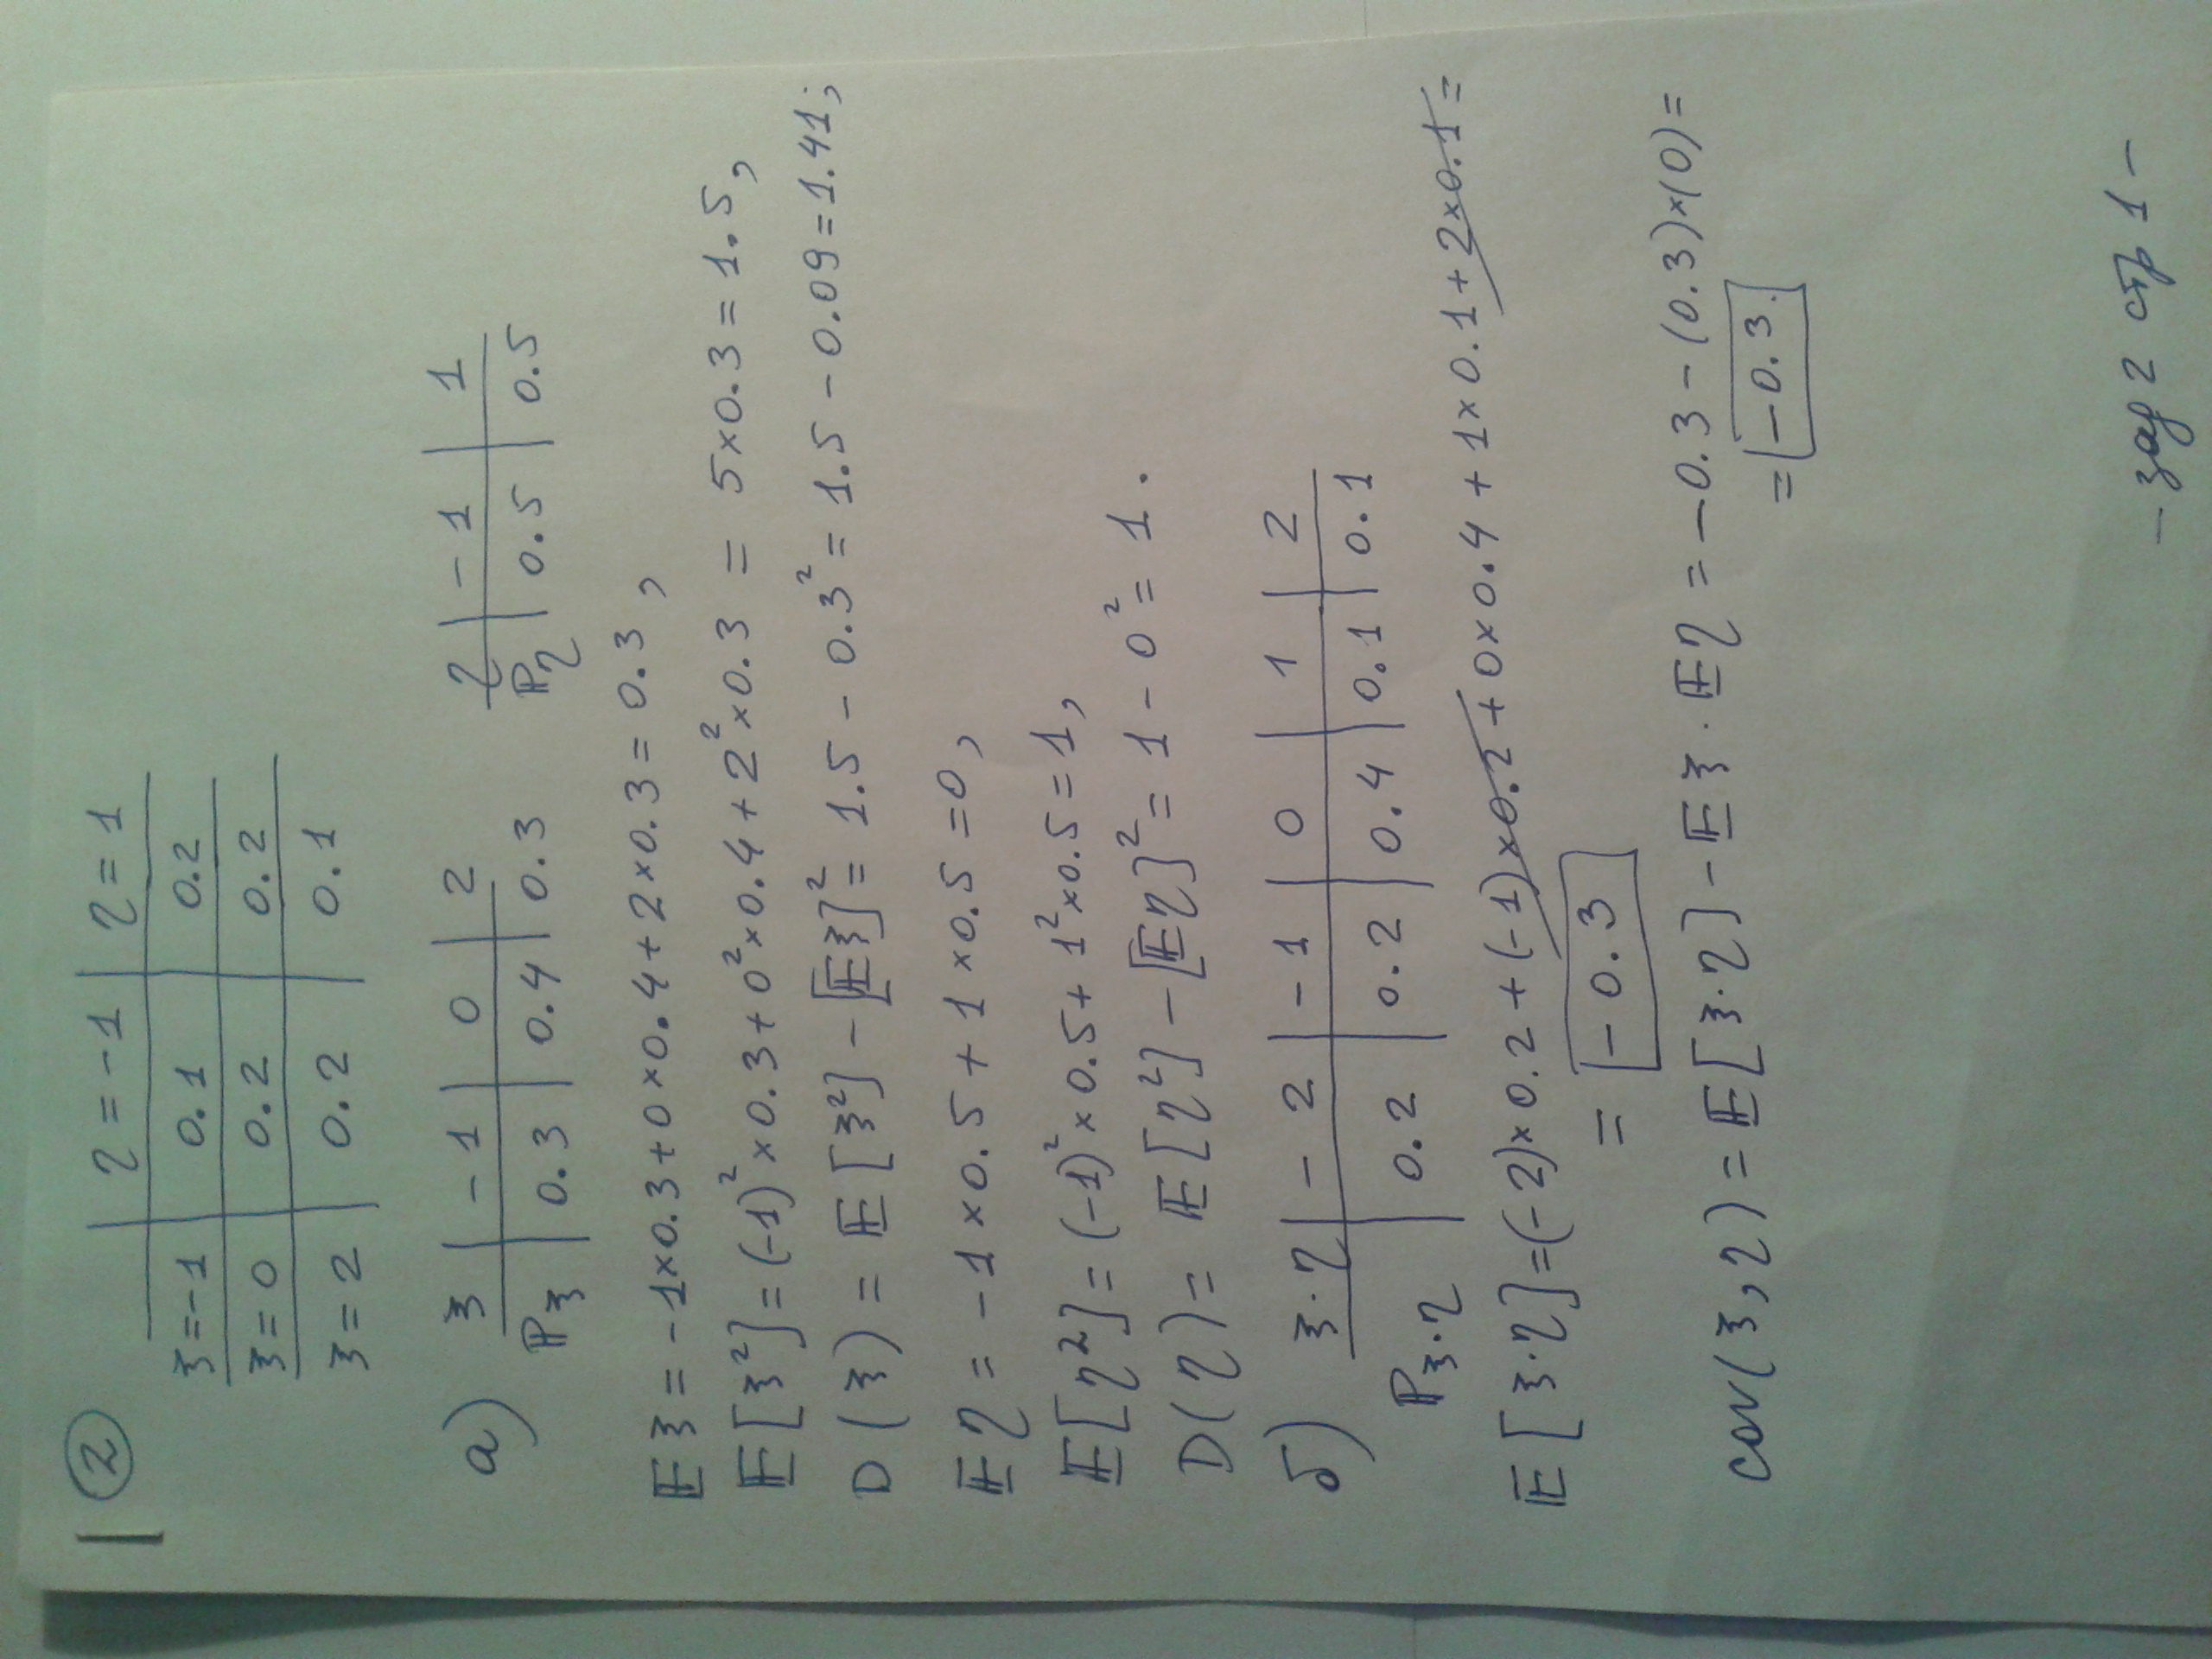 2
η = -1 η = 1
ξ = -1 0.1 0.2
ξ = 0 0.2 0.2
ξ = 2 0.2 0.1
а) ξ -1 0 2 η -1 1
P_ξ 0.3 0.4 0.3 P_η 0.5 0.5
Eξ = -1×0.3+0×0.4+2×0.3 = 0.3 ,
E[ξ²] = (-1)²×0.3+0²×0.4+2²×0.3 = 5×0.3 = 1.5,
D(ξ) = E[ξ²] - [Eξ]² = 1.5 - 0.3² = 1.5 - 0.09 = 1.41;
Eη = -1×0.5 + 1×0.5 = 0,
E[η²] = (-1)²×0.5 + 1²×0.5 = 1,
D(η) = E[η²] - [Eη]² = 1 - 0² = 1.
б) ξ·η -2 -1 0 1 2
P_ξ·η 0.2 0.2 0.4 0.1 0.1
E[ξ·η] = (-2)×0.2 + (-1)×0.2 + 0×0.4 + 1×0.1 + 2×0.1 =
= -0.3
cov(ξ,η) = E[ξ·η] - Eξ · Eη = -0.3 - (0.3)×(0) =
= -0.3.
- зад 2 стр 1 -